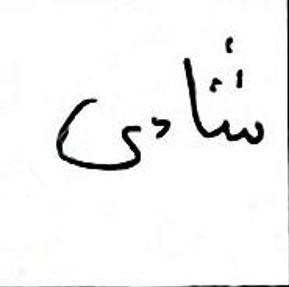 شادی